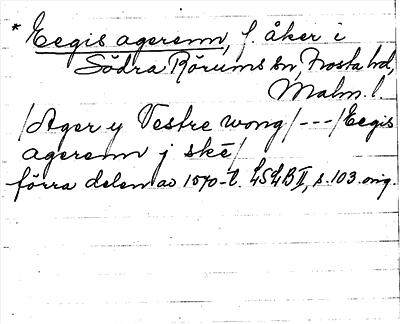 * Eegis agerenn, f. åker i
Södra Rörums sn, Frosta hd,
Malm. l.
/Ager y Vestre wong/---/Eegis
agerenn j skē/
förra delen av 1570-t. LSLB II, s. 103. orig.